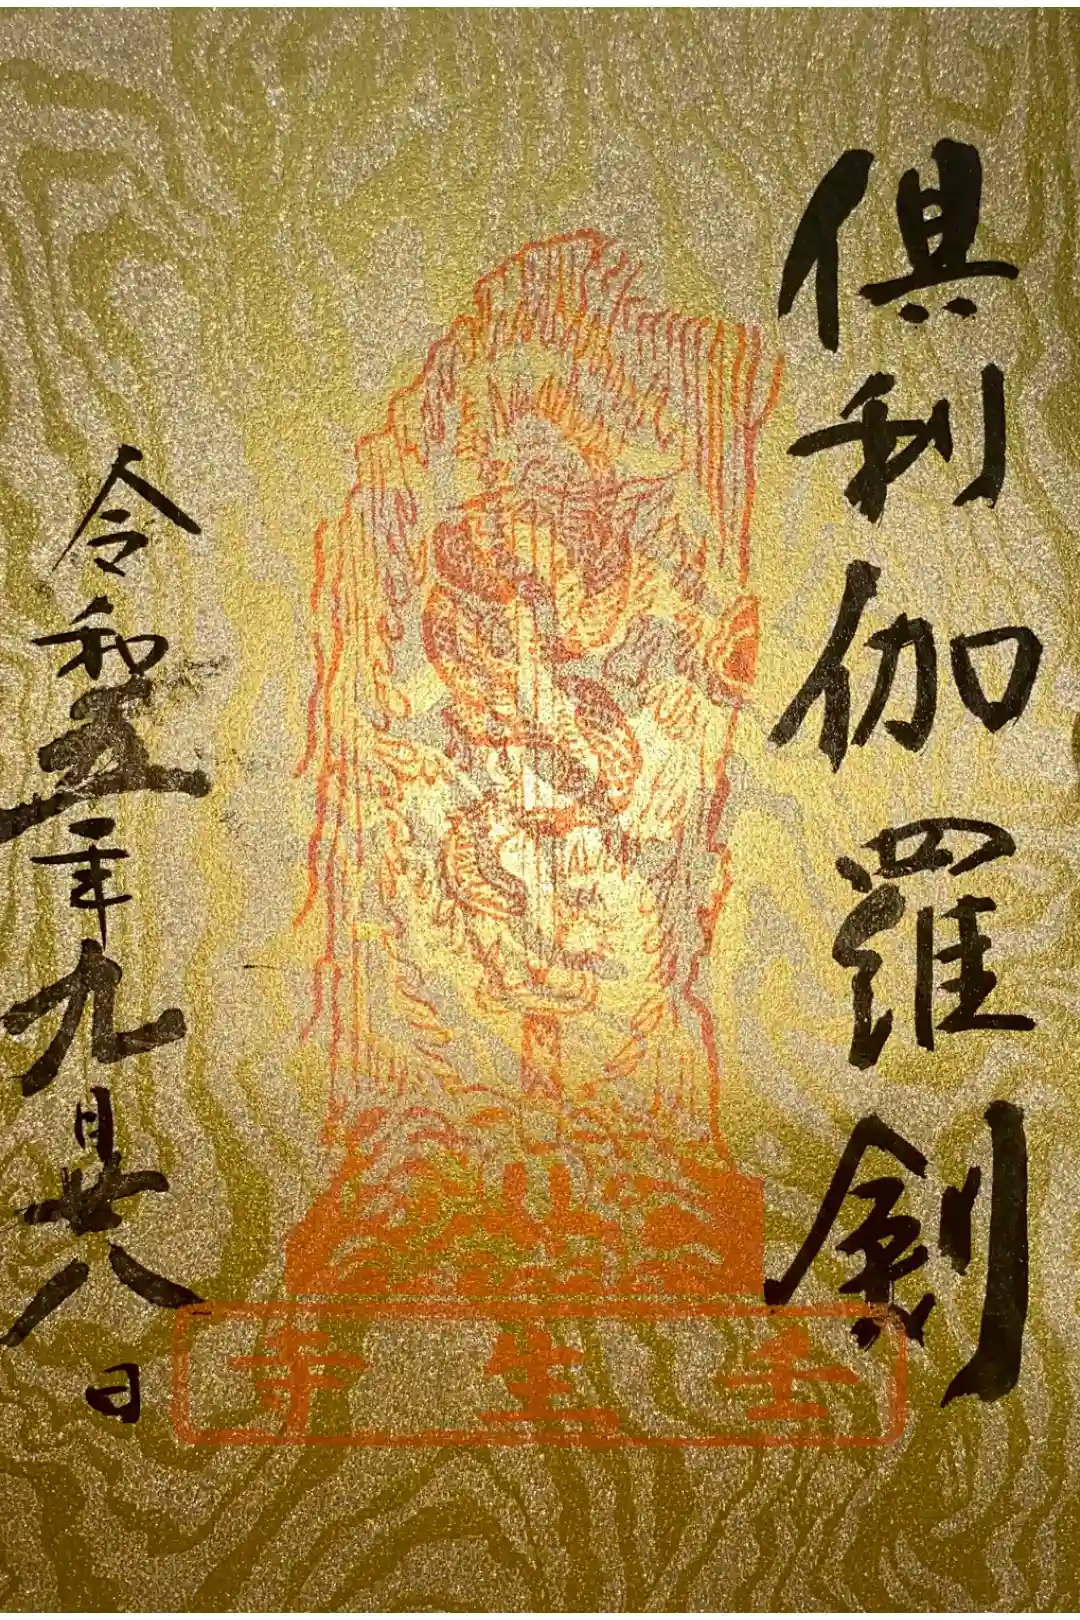 俱利伽羅劍
壬生寺
令和五年九月廿八日